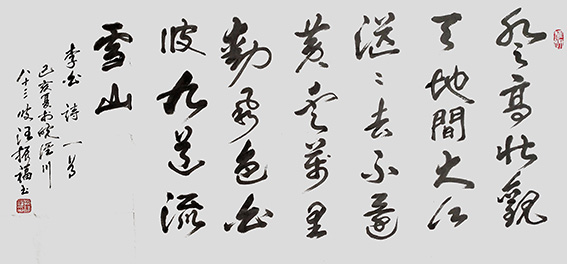 登高壯觀
天地間大江
茫〻去不還
黃雲萬里
動風色白
波九道流
雪山
李白詩一首
己亥夏於皖涇川
八十三汪振福书